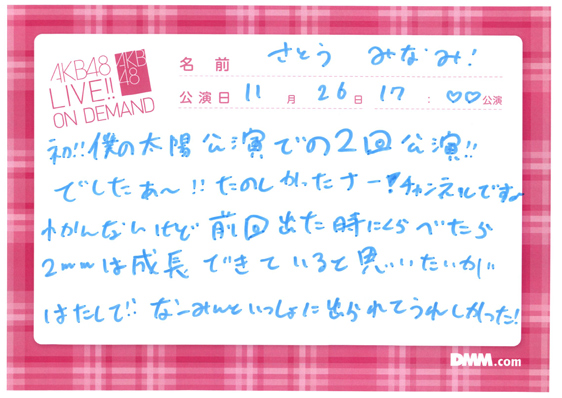 AKB48
LIVE!!
ON DEMAND
AKB
48
名前 さとう みなみ!
公演日 11 月 26 日 17 : ♡♡ 公演
初!!僕の太陽公演での2回公演!!
でしたぁ〜!!たのしかったさー!チャンネルですよ
わかんないけど前回出た時にくらべたら
2mmは成長できていると思いたいが
はたして!!なーみんといっしょに出られてうれしかった!
DMM.com